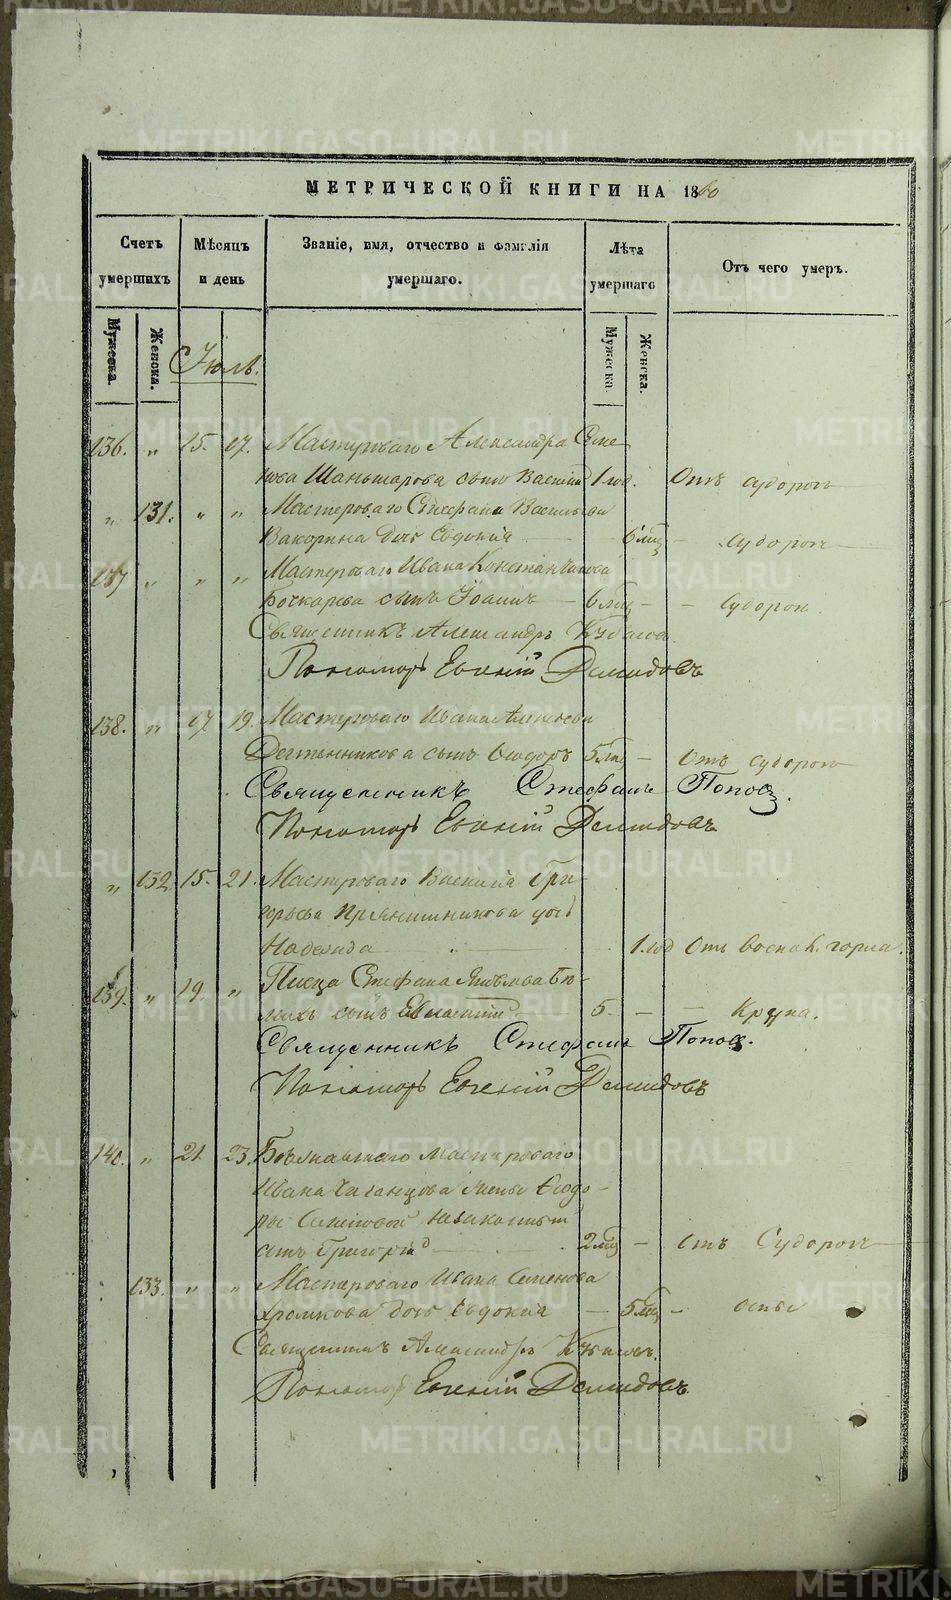 МЕТРИЧЕСКОЙ КНИГИ НА 1860
Счетъ умершихъ
Мѣсяцъ и день
Званіе, имя, отчество и фамилія умершаго.
Лѣта умершаго
Отъ чего умеръ.
Мужеска.
Женска.
Мужеска.
Женска.
Іюль.
136. " 15. 17. Мастероваго Александра Семе-
нова Шаньшарова сынъ Василій 1 год. Отъ судорогъ
" 131. " " Мастероваго Стефана Васильева
Вакорина дочь Евдокія 6 мѣс. - Судорогъ
137 " " " Мастероваго Ивана Константинова
Бочкарева сынъ Іоаннъ - 6 мѣс. - - Судорог.
Священникъ Александръ
Пономарь Евгеній Демидовъ
138. " 17 19. Мастероваго Ивана Алексѣева
Дегтенникова сынъ Ѳеодоръ 5 мѣс. - Отъ судорогъ
Священникъ Стефанъ Поповъ.
Пономарь Евгеній Демидовъ
" 132. 15. 21. Мастероваго Василія Гри-
горьева Прянишникова дочь
Надежда 1. год Отъ воспал. горла.
139. " 19. " Писца Стефана Яковлева Бѣ-
лыхъ сынъ 5. - - Крупа.
Священникъ Стефанъ Поповъ.
Пономарь Евгеній Демидовъ
140. " 21. 23. Бѣжавшаго мастероваго
Ивана жены Ѳеодо-
ры Семеновой незаконный
сынъ Григорій 2 мѣс. - Отъ Судорогъ
133. " " Мастероваго Ивана Семенова
Хромкова дочь Евдокія - 5 мѣс. - Оспы
Священникъ Александръ
Пономарь Евгеній Демидовъ
METRIKI.GASO-URAL.RU